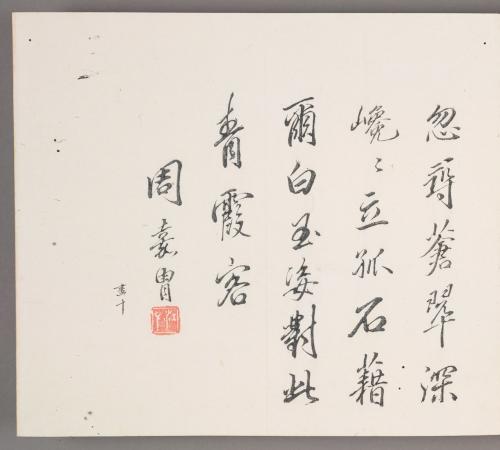 忽尋蒼翠深
巉〻立孤石藉
爾白玉姿對此
青霞客
周嘉胄
畫十